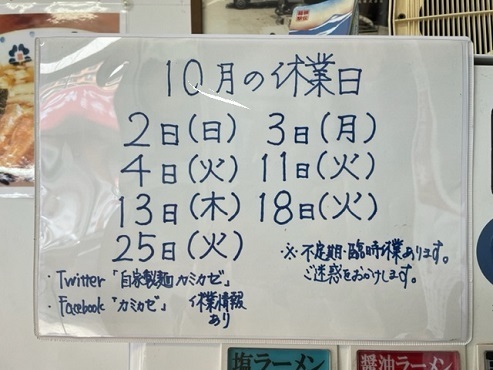 10月の休業日
2日(日) 3日(月)
4日(火) 11日(火)
13日(木) 18日(火)
25日(火)
※不定期・臨時休業あります。
ご迷惑をおかけします。
・Twitter「自家製麺カミカゼ」
・Facebook「カミカゼ」 休業情報
あり
塩ラーメン
醤油ラーメン